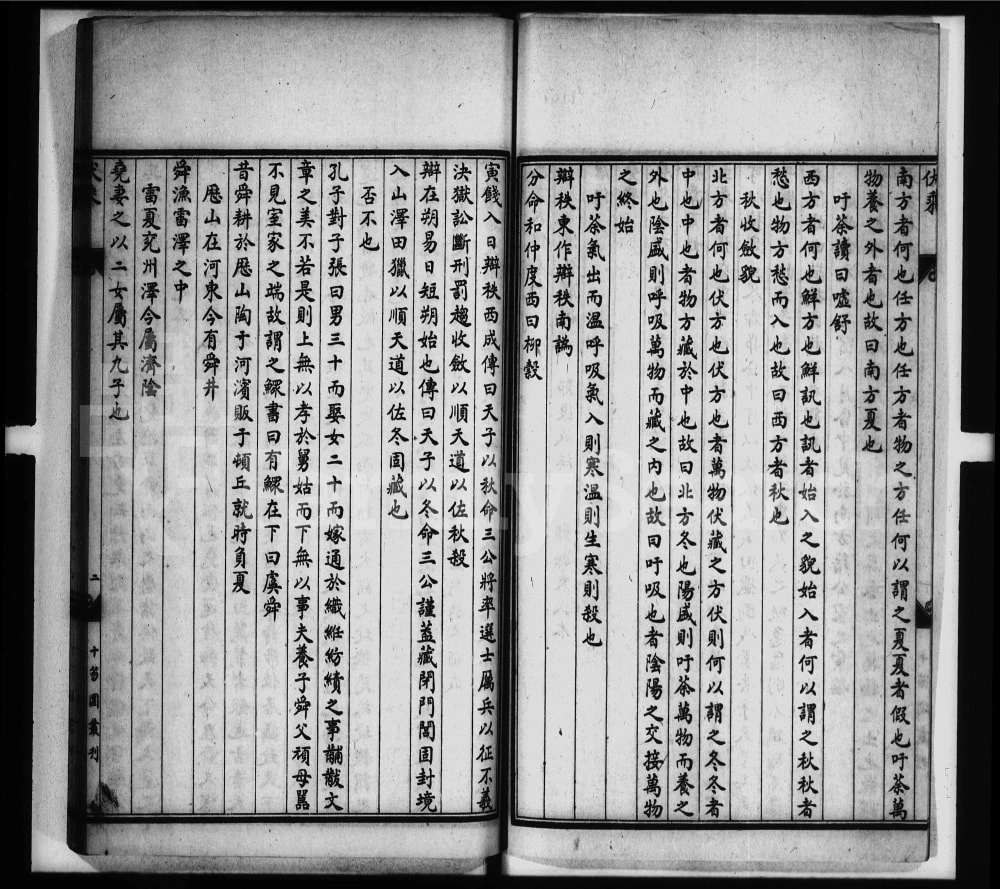 南方者何也任方也任方者物之方任何以謂之夏夏者假也吁荼萬
物養之外者也故曰南方夏也
吁荼讀曰噓舒
西方者何也鮮方也鮮訊也訊者始入之貌始入者何以謂之秋秋者
愁也物方愁而入也故曰西方者秋也
秋收斂貌
北方者何也伏方也伏方也者萬物伏藏之方伏則何以謂之冬冬者
中也中也者物方藏於中也故曰北方冬也陽盛則吁荼萬物而養之
外也陰盛則呼吸萬物而藏之內也故曰吁吸也者陰陽之交接萬物
之終始
吁荼氣出而溫呼吸氣入則寒溫則生寒則殺也
辯秩東作辯秩南譌
分命和仲度西曰柳穀
寅餞入日辯秩西成傳曰天子以秋命三公將率選士厲兵以征不義
決獄訟斷刑罰趨收斂以順天道以佐秋殺
辯在朔易日短朔始也傳曰天子以冬命三公謹蓋藏閉門閭固封境
入山澤田獵以順天道以佐冬固藏也
否不也
孔子對子張曰男三十而娶女二十而嫁通於織紝紡績之事黼黻文
章之美不若是則上無以孝於舅姑而下無以事夫養子舜父頑母嚚
不見室家之端故謂之鰥書曰有鰥在下曰虞舜
昔舜耕於歷山陶于河濱販于頓丘就時負夏
歷山在河東今有舜井
舜漁雷澤之中
雷夏兗州澤今屬濟陰
堯妻之以二女屬其九子也
二
十笏園叢刊